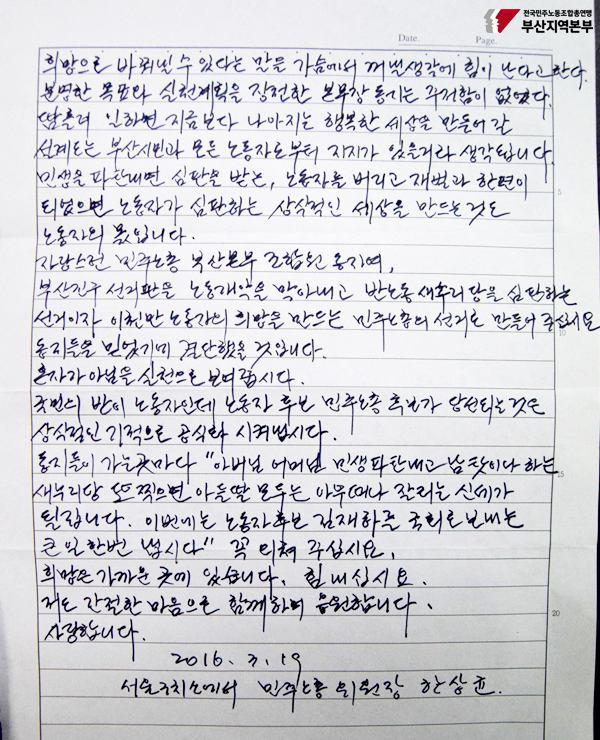 전국민주노동조합총연맹
부산지역본부
Date. Page.
희망으로 바뀌낼 수 있다는 말을 가슴에서 꺼낼 생각에 힘이 난다고 한다.
분명한 목표와 실천계획을 장전한 본부장 동지는 주저함이 없었다.
땀흘려 일하면 지금보다 나아지는 행복한 세상을 만들어 갈
설계도는 부산시민과 모든 노동자로부터 지지가 있을거라 생각됩니다.
민생을 파탄내면 심판을 받는, 노동자를 버리고 재벌과 한편이
되었으면 노동자가 심판하는 상식적인 세상을 만드는 것도
노동자의 몫입니다.
자랑스런 민주노총 부산본부 조합원 동지여,
부산진구 선거판을 노동개악을 막아내고 반노동 새누리당을 심판하는
선거이자 이천만 노동자의 희망을 만드는 민주노총의 선거로 만들어 주십시요
동지들을 믿었기에 결단했을 것입니다.
혼자가 아님을 실천으로 보여줍시다.
국민의 반이 노동자인데 노동자 후보 민주노총 후보가 당선되는 것은
상식적인 기적으로 공식화 시켜냅시다.
동지들이 가는곳마다 "아버님 어머님 민생파탄내고 남탓이나 하는
새누리당 또 찍으면 아들딸 모두는 아무때나 잘리는 신세가
될집니다. 이번에는 노동자후보 김재하를 국회로 보내는
큰일 한번 냅시다" 꼭 외쳐 주십시요.
희망은 가까운 곳에 있습니다. 힘내십시요.
저도 간절한 마음으로 함께하며 응원합니다.
사랑합니다.
2016. 3. 19
서울구치소에서 민주노총 위원장 한상균.
5
10
15
20